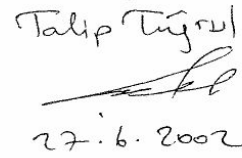 Talip Tuğrul
27.6.2002